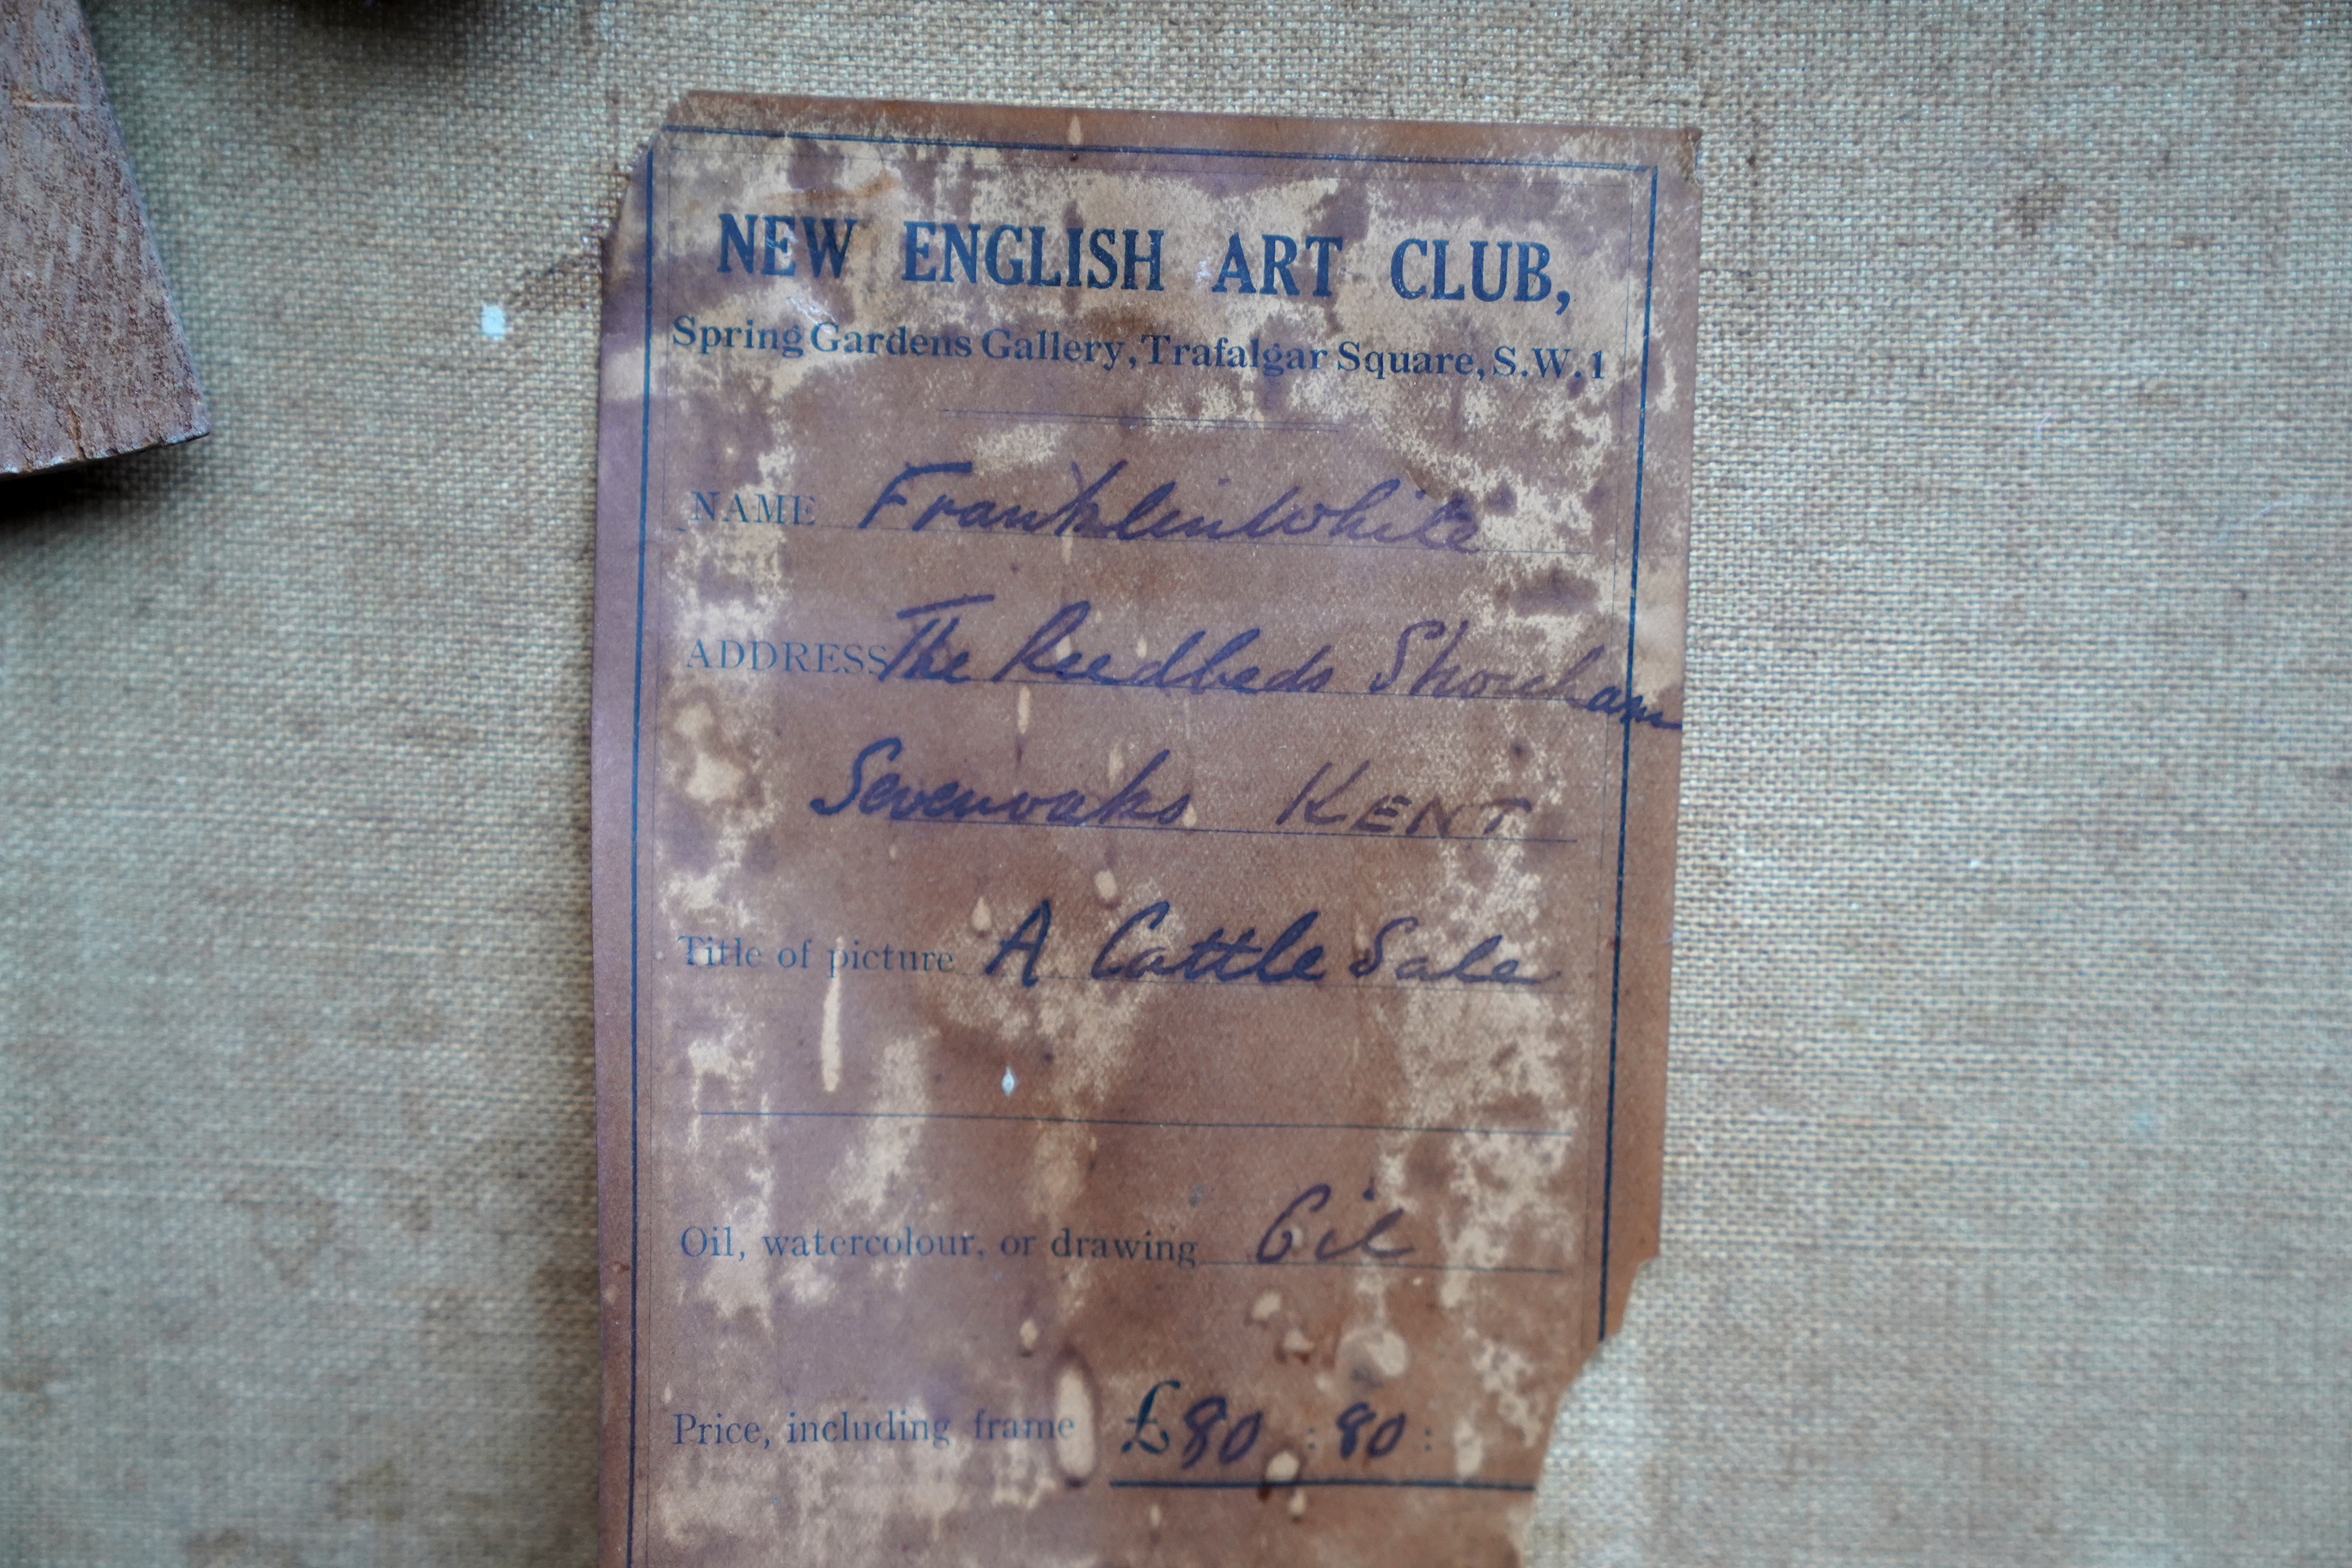 NEW ENGLISH ART CLUB,
Spring Gardens Gallery, Trafalgar Square, S.W.1
NAME Franklin White
ADDRESS The Reedbeds Shoreham
Sevenoaks KENT
Title of picture A Cattle Sale
Oil, watercolour, or drawing Oil
Price, including frame £80 : 80 :